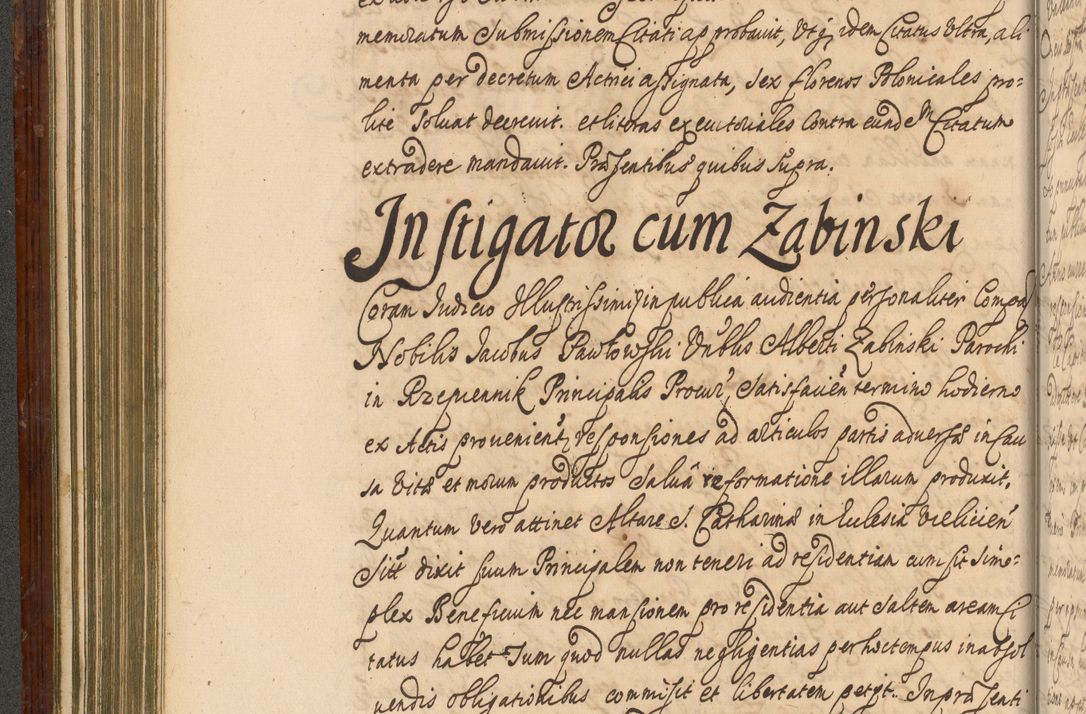 memoratum Submissionem Citati approbavit, Utq, idem Citatus Ultra, ali
menta per decretum Actrici assignata, sex florenos Polonicales pro=
lite Solvat decrevit. et literas executoriales Contra eundem Citatum
extradere mandavit. Præsentibus quibus Supra.
Instigator cum Zabinski
Coram Iudicio Illustrissimi in publica audientia personaliter Compar
Nobilis Iacobus Pawlowski Undus Alberti Zabinski Parochi
in Rzepiennik Principalis Procur, Satisfacien termino hodierno
ex Actis provenient, responsiones ad articulos partis adversæ in Cau
sa Vitæ et morum productos Salvâ reformatione illarum produxit.
Quantum vero attinet Altare S. Catharinæ in Eclesia Vielicien
Sitt dixit suum Principalem non teneri ad residentiam cum sit Sim=
plex Beneficium nec mansionem pro residentia aut Saltem aream Ci
tatus habet Tum quod nullas negligentias per hoc tempus in absol
vendis obligationibus commisit et libertatem petyt. In præsenti